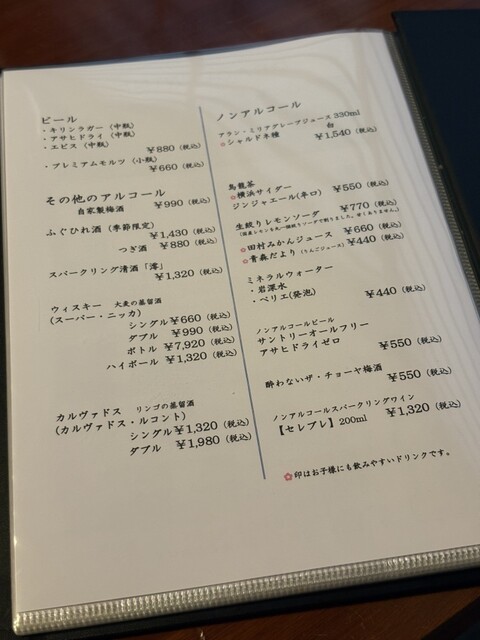 ビール
・キリンラガー（中瓶）
・アサヒドライ（中瓶）
・エビス（中瓶）
¥880（税込）
・プレミアムモルツ（小瓶）
¥660（税込）
その他のアルコール
自家製梅酒 ¥990（税込）
ふぐひれ酒（季節限定）
¥1,430（税込）
つぎ酒 ¥880（税込）
スパークリング清酒「澪」
¥1,320（税込）
ウィスキー 大麦の蒸留酒
(スーパー・ニッカ)
シングル¥660（税込）
ダブル ¥990（税込）
ボトル ¥7,920（税込）
ハイボール ¥1,320（税込）
カルヴァドス リンゴの蒸留酒
(カルヴァドス・ルコント)
シングル¥1,320（税込）
ダブル ¥1,980（税込）
ノンアルコール
アラン・ミリアグレープジュース 330ml
シャルドネ種 白
¥1,540（税込）
烏龍茶
横浜サイダー
ジンジャエール(辛口) ¥550（税込）
生絞りレモンソーダ ¥770（税込）
田村みかんジュース ¥660（税込）
青森だより（りんごジュース） ¥440（税込）
ミネラルウォーター
・岩深水
・ペリエ(発泡)
¥440（税込）
ノンアルコールビール
サントリーオールフリー
アサヒドライゼロ
¥550（税込）
酔わないザ・チョーヤ梅酒
¥550（税込）
ノンアルコールスパークリングワイン
【セレブレ】200ml ¥1,320（税込）
印はお子様にも飲みやすいドリンクです。